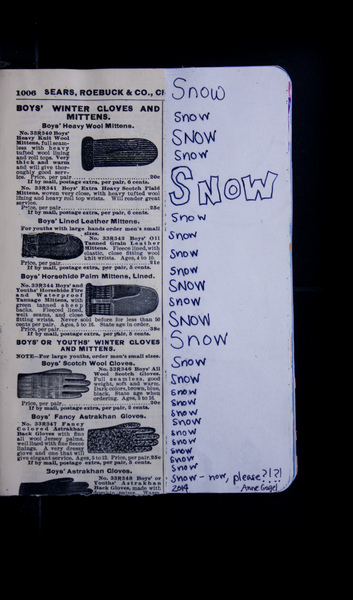 1006 SEARS, ROEBUCK & CO., CH
BOYS' WINTER GLOVES AND
MITTENS.
Boys' Heavy Wool Mittens.
No. 33R340 Boys'
Heavy Knit Wool
Mittens, full seam-
less with heavy
tufted wool lining
and roll tops. Very
thick and warm
and will give thor-
oughly good serv-
ice. Price, per pair
20c
If by mail, postage extra, per pair, 6 cents.
No. 33R341 Boys' Extra Heavy Scotch Plaid
Mittens, woven very close, with heavy tufted wool
lining and heavy roll top wrists. Will render great
service.
Price, per pair
25c
If by mail, postage extra, per pair, 6 cents.
Boys' Lined Leather Mittens.
For youths with large hands order men's small
sizes.
No. 33R342 Boys' Oil
Tanned Grain Leather
Mittens. Fleece lined, with
elastic, close fitting wool
knit wrists. Ages, 5 to 15.
Price, per pair
21c
If by mail, postage extra, per pair, 5 cents.
Boys' Horsehide Palm Mittens, Lined.
No. 33R344 Boys' and
Youths' Horsehide Fire
and Waterproof
Tannage Mittens, with
green tanned sheep
backs. Fleeced lined,
welt seams, and close
fitting wrists. Never sold before for less than 50
cents per pair. Ages, 5 to 15. State age in order.
Price, per pair
38c
If by mail, postage extra, per pair, 5 cents.
BOYS' OR YOUTHS' WINTER GLOVES
AND MITTENS.
NOTE—For large youths, order men's small sizes.
Boys' Scotch Wool Gloves.
No. 33R346 Boys' All
Wool Scotch Gloves.
Full seamless, good
weight, soft and warm.
Dark colors, brown, blue,
black. State age when
ordering. Ages, 5 to 15.
Price, per pair
20c
If by mail, postage extra, per pair, 2 cents.
Boys' Fancy Astrakhan Gloves.
No. 33R347 Fancy
Colored Astrakhan
Back Gloves with fine
all wool Jersey palms,
well lined with fine fleece
linings. A very dressy
glove and one that will
give elegant service. Ages, 5 to 15. Price, per pair, 25c
If by mail, postage extra, per pair, 3 cents.
Boys' Astrakhan Gloves.
No. 33R348 Boys' or
Youths' Astrakhan
Back Gloves, made with
Snow
Snow
SNOW
Snow
SNOW
Snow
Snow
Snow
Snow
SNOW
Snow
SNOW
Snow
Snow
Snow
Snow
Snow
Snow
Snow
Snow
Snow
Snow
Snow
Snow - now, please?!?!
2014 Anne Gagel